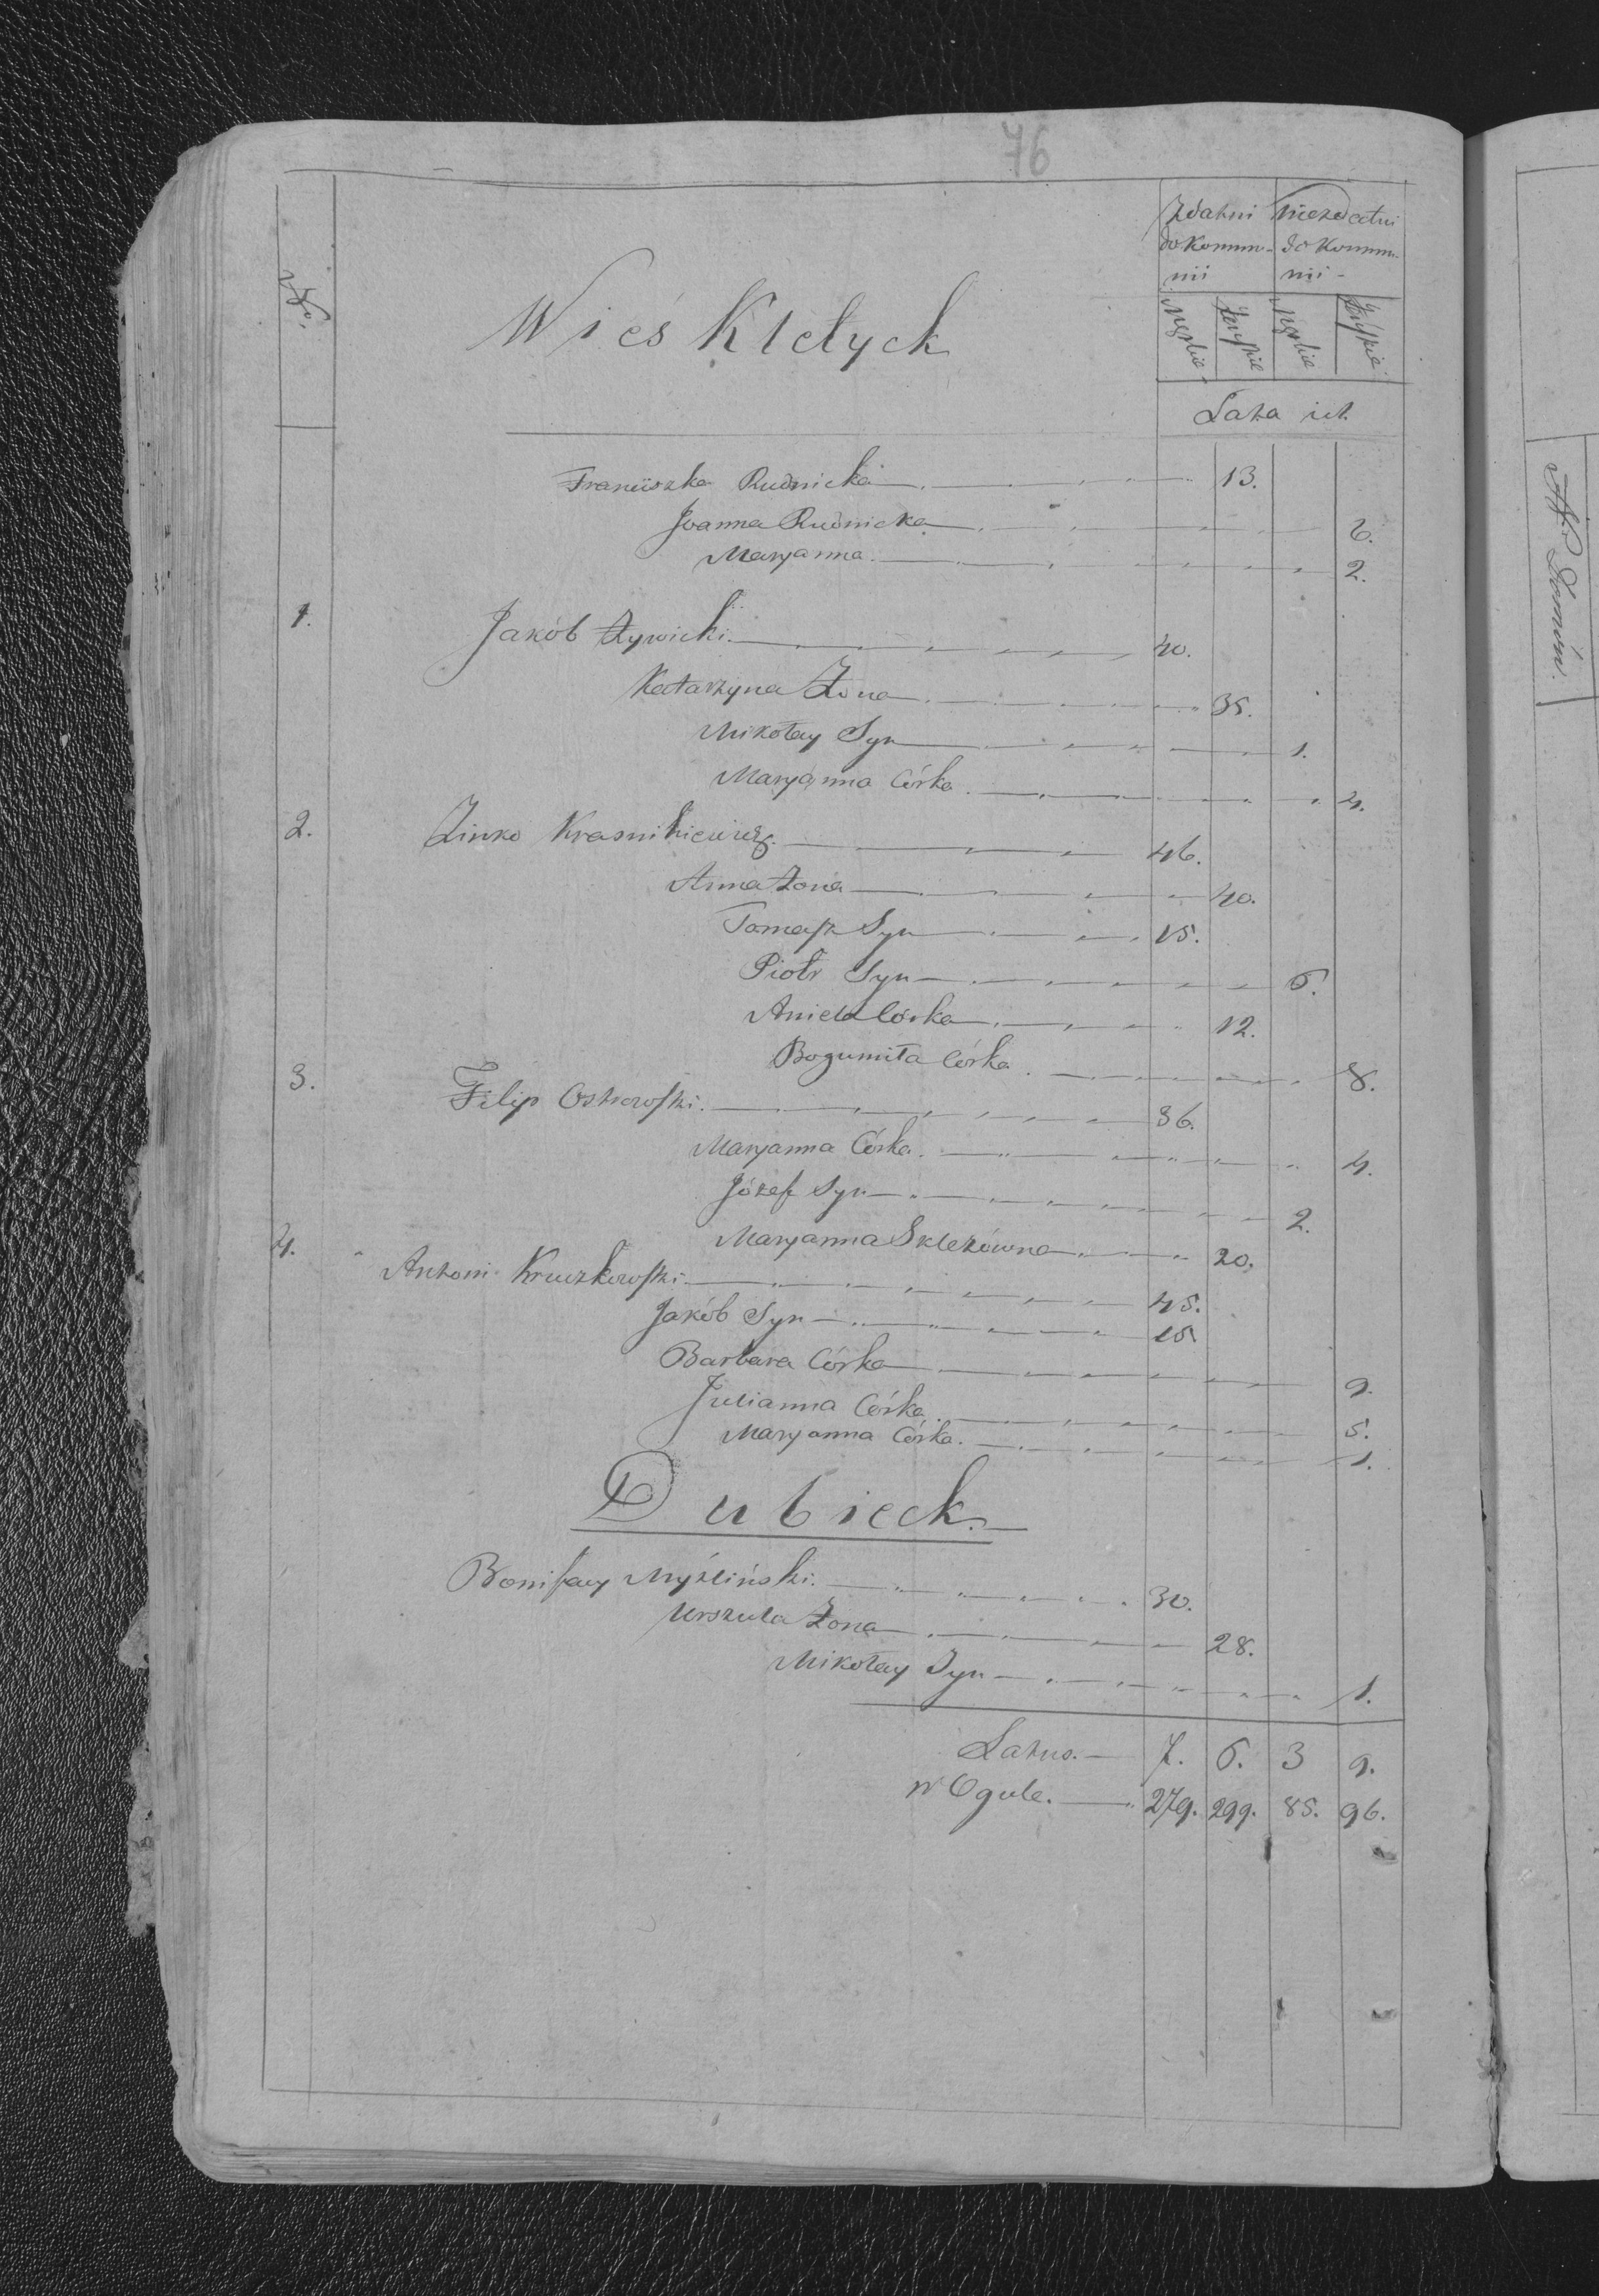 76
No.
Wieś Kletyck
Zdatni do Kommu-nii
Niezdatni do Kommu-nii
Męzkie Żeńskie Męzkie Żeńskie
Lata ich
Franciszka Rudnicka 13.
Joanna Rudnicka 6.
Maryanna 2.
1. Jakób Żywicki 40.
Katarzyna Żona 35.
Mikołay Syn 1.
Maryanna Córka 4.
2. Zinko Krasnikiewicz 46.
Anna Żona 40.
Tomasz Syn 15.
Piotr Syn 6.
Aniela Córka 12.
Bogumiła Córka 8.
3. Filip Ostrowski 36.
Maryanna Córka 4.
Józef Syn 2.
Maryanna Sklezówna 20.
4. Antoni Kruczkowski 45.
Jakób Syn 15
Barbara Córka 9.
Julianna Córka 5.
Maryanna Córka 1.
Dubieck.
Bonifacy Myśliński 30.
Urszula Żona 28.
Mikołay Syn 1.
Latus. 7. 6. 3 9.
w Ogule. 279. 299. 85. 96.
No. Domów.